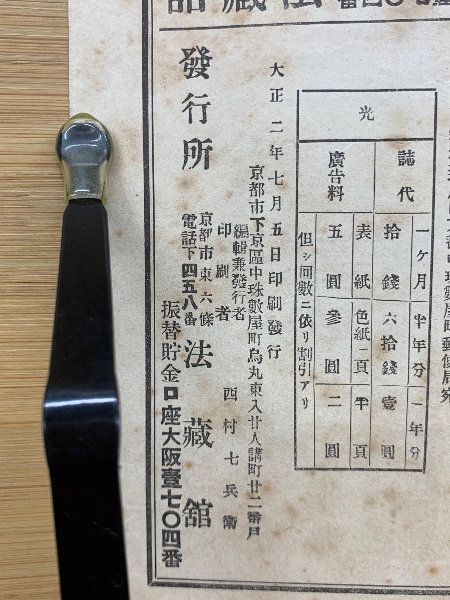 光
誌代
一ヶ月 半年分 一年分
拾錢 六拾錢 壹圓
廣告料
表紙 色紙一頁 半頁
五圓 參圓 二圓
但シ回數ニ依リ割引アリ
大正二年七月五日印刷發行
京都市下京區中珠數屋町烏丸東入廿人講町廿二番戸
編輯兼發行者
印刷者
西村七兵衛
京都市東六條
電話下四五八番
發行所
法藏館
振替貯金口座大阪壹七〇四番